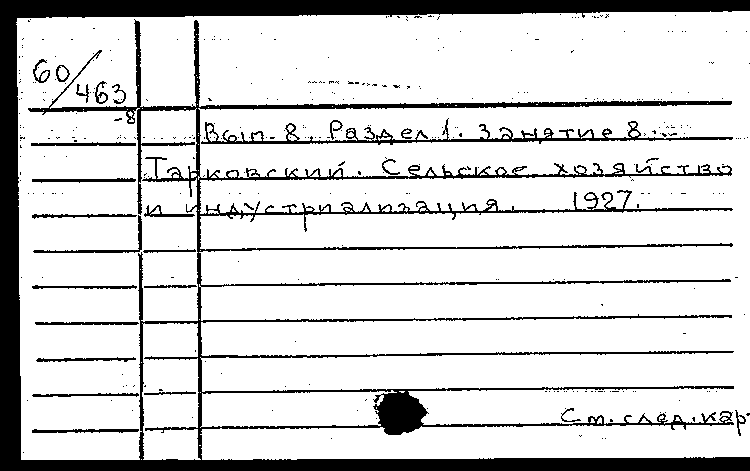 60/463
-8
Вып. 8. Раздел 1. Занятие 8.
Тарковский. Сельское хозяйство
и индустриализация. 1927.
См. след. кар